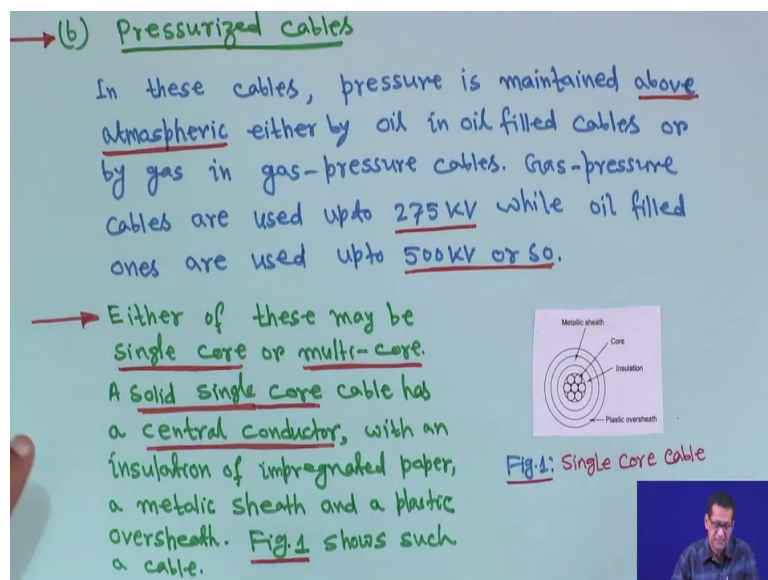 (b) Pressurized cables
In these cables, pressure is maintained above
atmaspheric either by oil in oil filled cables or
by gas in gas-pressure cables. Gas-pressure
cables are used upto 275 KV while oil filled
ones are used upto 500KV or so.
Either of these may be
single core or multi-core.
A solid single core cable has
a central conductor, with an
insulation of impregnated paper,
a metalic sheath and a plastic
oversheath. Fig.1 shows such
a cable.
Metallic sheath
Core
Insulation
Plastic oversheath
Fig.1: Single core cable